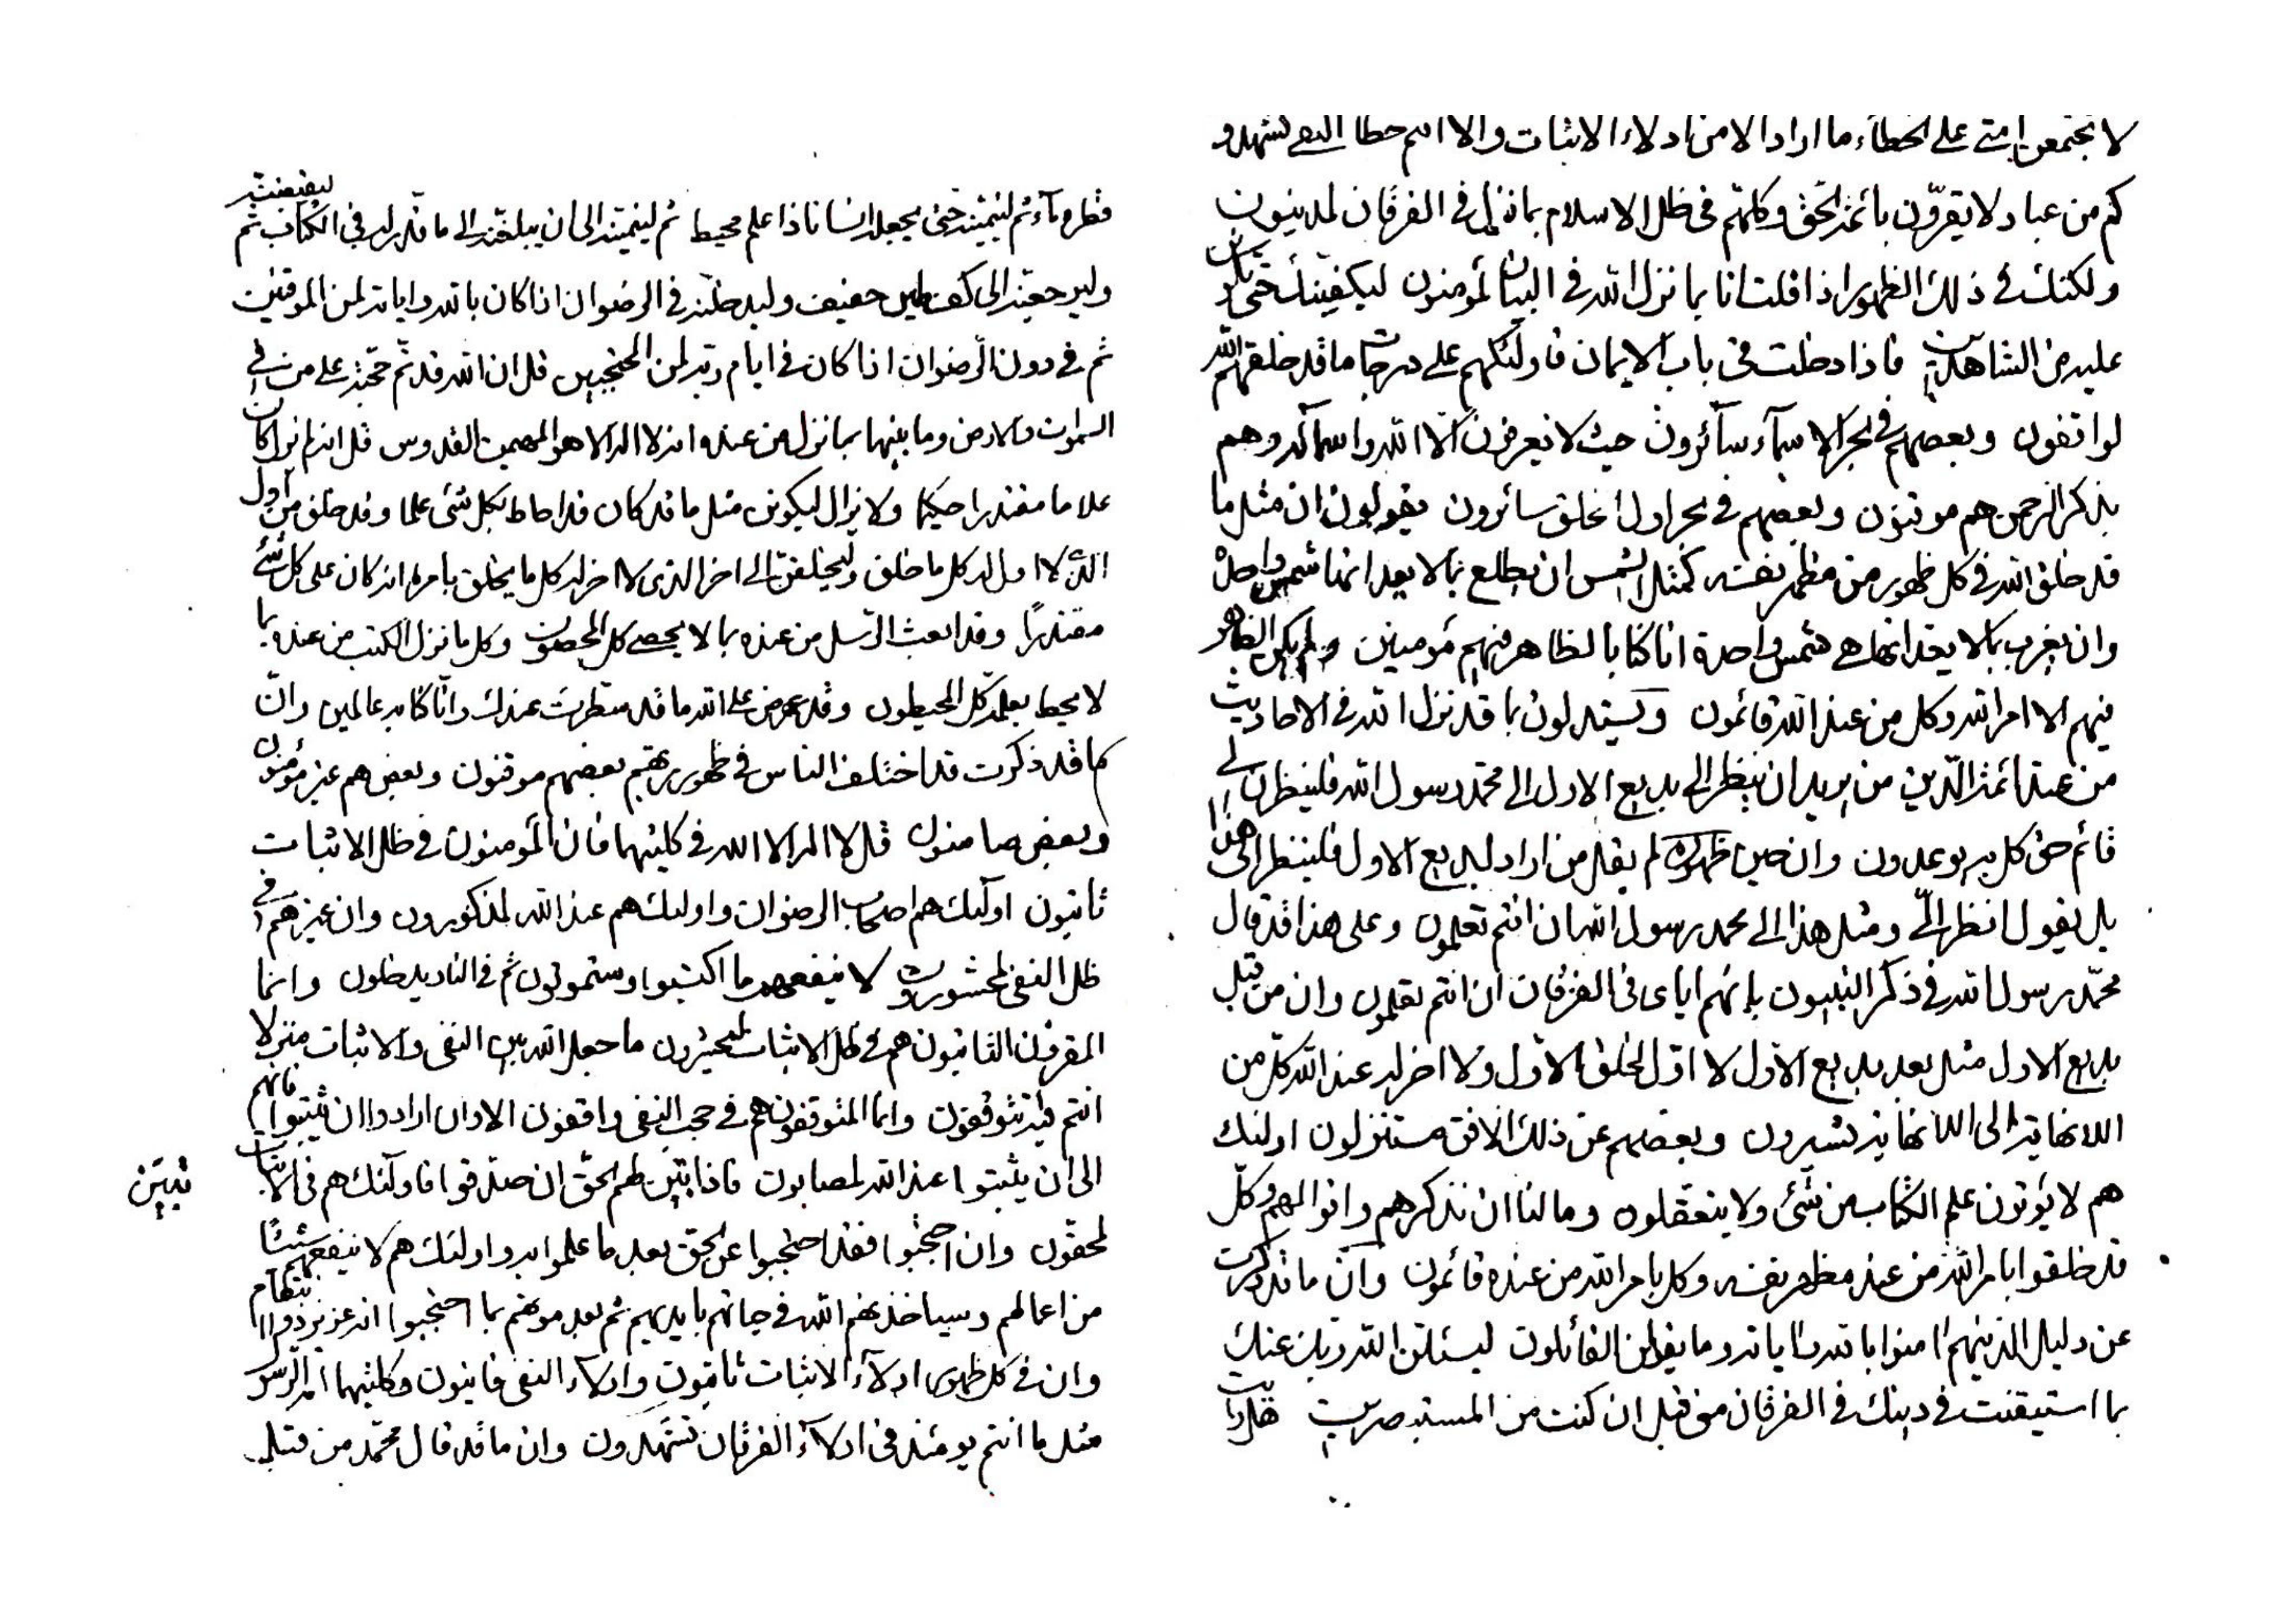 لا يجتمعن امتى على الخطاء ما اراد الا من ادلاء الاثبات والا انتم خطا النفى تشهدون
كم من عباد لا يقرون بائمة الحق وكلهم فى ظل الاسلام بما نزل فى الفرقان لمدينون
ولكنك فى ذلك الظهور اذا قلت انا بما نزل الله فى البيان لمؤمنون ليكفينك حتى تكونن
عليه من الشاهدين فاذا دخلت فى باب الايمان فاولئكهم على درجات ما قد خلقهم الله
لواقفون وبعضهم فى بحر الاسماء سآئرون حيث لا يعرفون الا الله واسمائه وهم
بذكر الرحمن هم موقنون وبعضهم فى بحر اول الخلق سائرون يقولون ان مثل ما
قد خلق الله فى كل ظهور من مظهر نفسه كمثل الشمس ان يطلع بما لا يعد انها شمس واحدة
وان يغرب بما لا يعد انها هى شمس واحدة انا كنا بالظاهر فيهم مؤمنين ولم يكن الظاهر
فيهم الا امر الله وكل من عند الله قائمون ويستدلون بما قد نزل الله فى الاحاديث
من عند ائمة الدين من يريد ان ينظر الى بديع الاول الى محمد رسول الله فلينظرن الى
قائم حق كل به يوعدون وان حين ظهوره لم يقل من اراد بديع الاول فلينظر الى هذا
بل يقول انظر الىّ ومثل هذا الى محمد رسول الله ان انتم تعلمون وعلى هذا قد قال
محمّد رسول الله فى ذكر النبيون بانهم اياى فى الفرقان ان انتم تعلمون وان من قبل
بديع الاول مثل بعد بديع الاول لا اوّل لخلق الاول ولا اخر له عند الله كل من
اللانهاية الى اللانهاية تسيرون وبعضهم عن ذلك الافق مستنزلون اولئك
هم لا يؤتون علم الكتاب من شئ ولا يتعقلون وما لنا ان نذكرهم وانوالهم وكلّ
قد خلقوا بامر الله من عند مظهر نفسه وكل بامر الله من عنده قائمون وان ما قد ذكرت
عن دليل الذينهم امنوا بالله واياته وما يقولن القائلون ليسئلن الله ربك عنك
بما استيقنت فى دينك فى الفرقان من قبل ان كنت من المستبصرين
قطرة مآء ثم لينميّنه حتى يجعله انسانا ذا علم محيط ثم لينمينه الى ان يبلغنه الى ما قدر له فى الكتاب ثم ليقبضنه
وليرجعنه الى كف طين حفيف وليدخلنه فى الرضوان اذا كان بالله واياته لمن الموقنين
ثم فى دون الرضوان اذا كان فى ايام ربه لمن المحتجبين قل ان الله قد تم حجته على من فى
السموات والارض وما بينهما بما نزل من عنده انه لا اله الا هو المهيمن القدوس قل انه لم يزل كان
علاما مقتدرا حكيما ولا يزال ليكونن مثل ما قد كان قد احاط بكل شئ علما وقد خلق من اول
الذى لا اول له كل ما خلق وليخلقن الى اخر الذى لا اخر له كل ما يخلق بامره انه كان على كل شئ
مقتدرًا وقد ابعث الرسل من عنده بما لا يحصى كل المحصون وكل ما نزل الكتب من عنده بما
لا يحيط بعلمه كل المحيطون وقد عرض على الله ما قد سطرت عندك وانا كنا به عالمين وان
كما قد ذكرت قد اختلف الناس فى ظهور ربهم بعضهم موقنون وبعض هم غير مؤمنون
وبعض صامتون قل لا اله الا الله فى كلتيهما فان المؤمنون فى ظل الاثبات
ثابتون اولئك هم اصحاب الرضوان واولئك هم عند الله لمذكورون وان غيرهم فى
ظل النفى لمحشورون لا ينفعهم ما اكتسبوا وستموتون ثم فى النار يدخلون وانما
المقرون الفانيون هم فى ظل الاثبات ليحشرون ما جعل الله بين النفى والاثبات منزلا
انتم فيه تتوقفون وانما المتوقفون هم فى حجب النفى واقفون الا وان ارادوا ان يثبتوا فانهم
الى ان يثبتوا عند الله لمصابون فاذا تبين لهم الحق ان صدقوا فاولئك هم فى الاثبات
تبيّن
لمحقون وان احتجبوا فقد احتجبوا عن الحق بعد ما علموا به واولئك هم لا ينفعهم شيئًا
من اعمالهم وسياخذنهم الله فى حياتهم بايديهم ثم بعد موتهم بما احتجبوا انه عزيز ذو انتقام
وان فى كل ظهور ادلآء الاثبات ثابتون وادلاء النفى فانيون وكلتيهما
مثل ما انتم يومئذ فى ادلآء الفرقان تشهدون وان ما قد قال محمّد من قبل